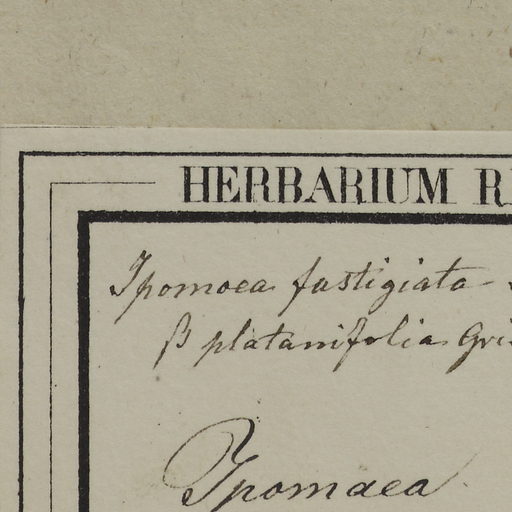 HERBARIUM R
Ipomoea fastigiata
β platanifolia Gris
Ipomaea